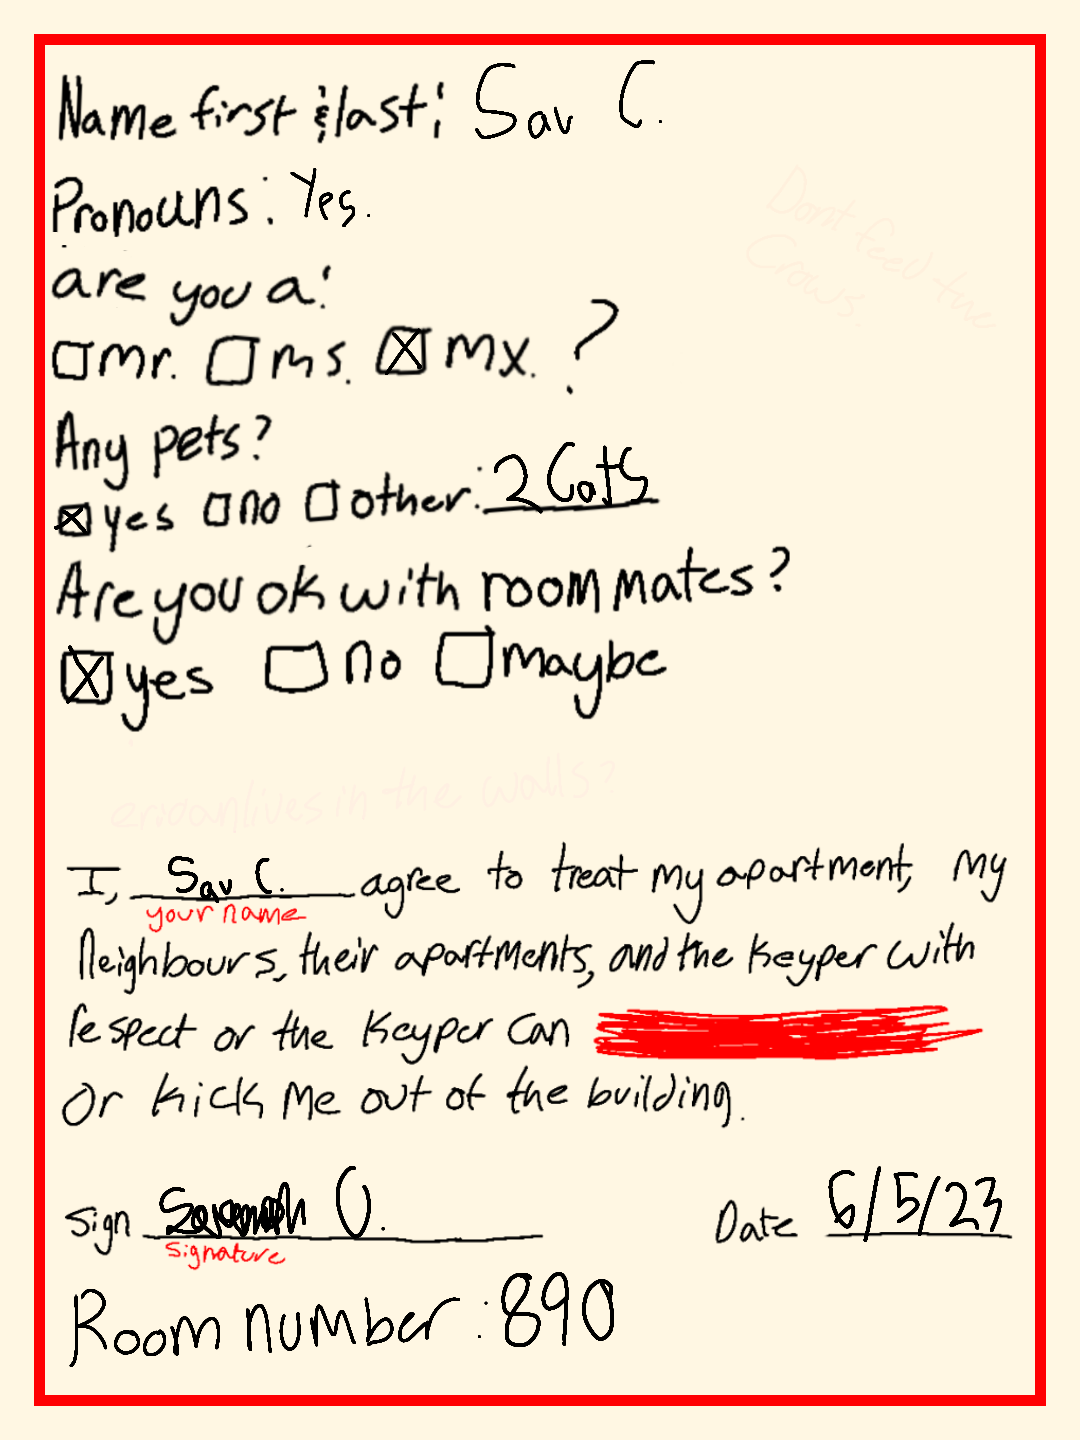 Name first & last: Sav C.
Pronouns: Yes.
Dont feed the
Crows.
are you a:
mr. ms. mx. ?
Any pets?
yes no other: 2 Cats
Are you ok with roommates?
yes no maybe
lives in the walls?
I, Sav C. agree to treat my apartment, my
your name
Neighbours, their apartments, and the Keyper with
respect or the Keyper can
Or kick me out of the building.
Sign C. Date 6/5/23
signature
Room number: 890